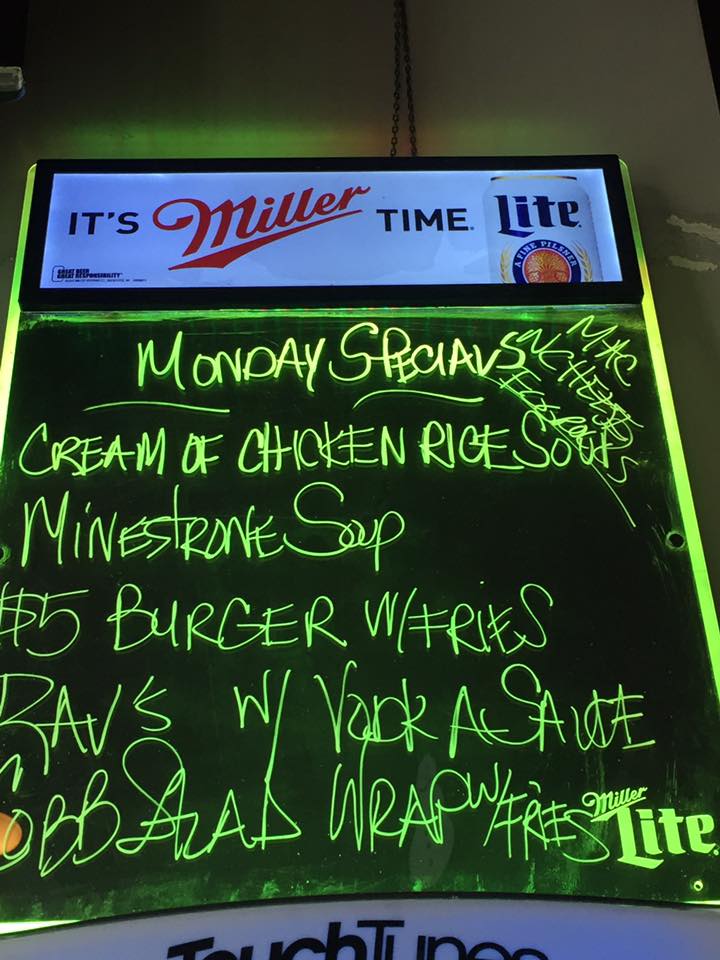 IT'S Miller TIME. Lite
A FINE PILSNER
GREAT BEER
GREAT RESPONSIBILITY
MONDAY SPECIALS
MAC
N CHEESE
CREAM OF CHICKEN RICE SOUP
MINESTRONE Soup
$5 BURGER W/FRIES
RAV'S W/ VODKA SAUCE
COBB SALAD WRAP W/FRIES
Miller
Lite
TouchTunes